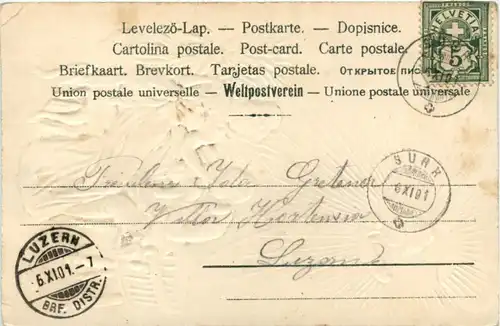 Levelezö-Lap. — Postkarte. — Dopjsnice.
Cartolina postale. Post-card. Carte postale.
Briefkaart. Brevkort. Tarjetas postale. ОТКРЫТОЕ ПИС
Union postale universelle – Weltpostverein – Unione postale universale
HELVETIA
5
SUHR
6 XI 01
Fräulein Ida
Luzern
LUZERN
6.XI.01.–7
BRF. DISTR.